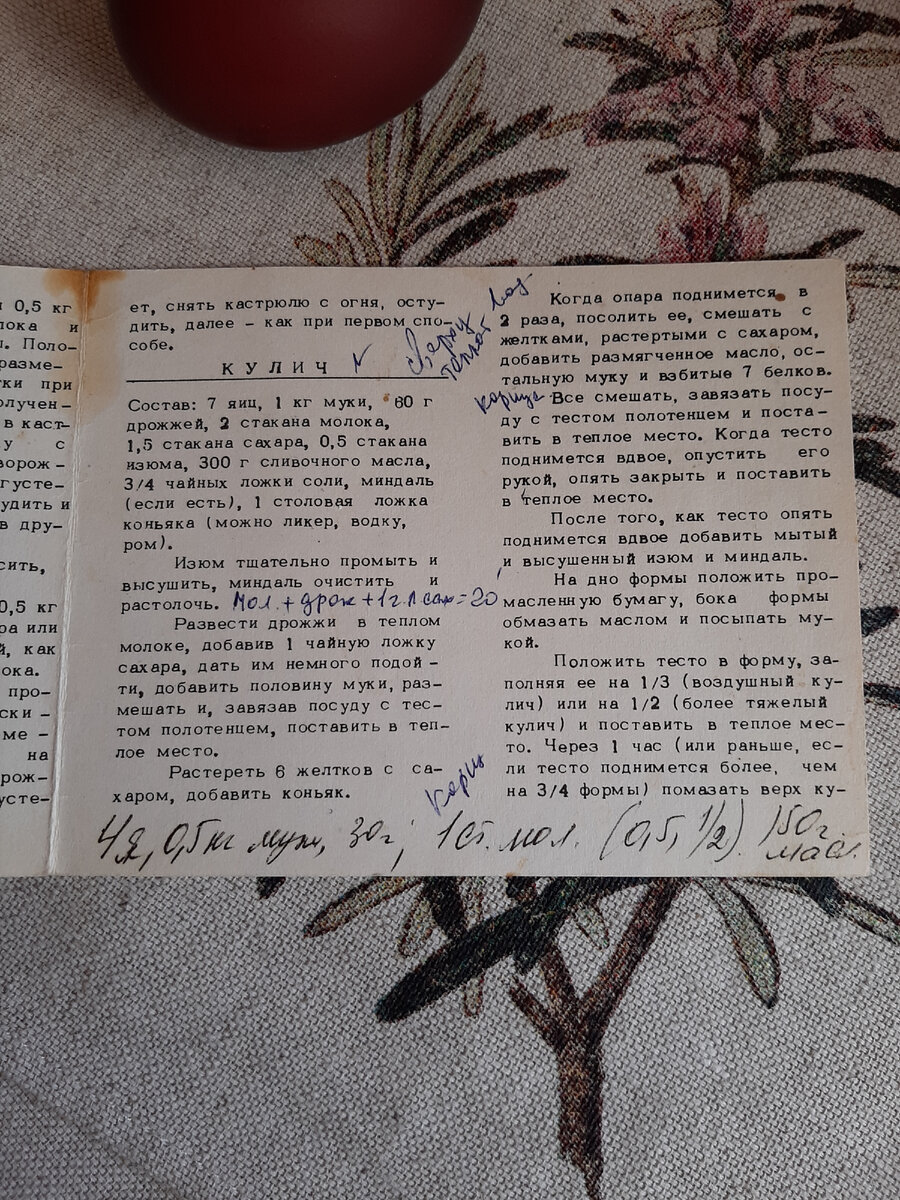 и 0,5 кг
лока и
и. Поло-
разме-
тки при
олучен-
в каст-
у с
ворож-
густе-
удить и
в дру-
сить,
0,5 кг
ра или
й, как
ока.
про-
ски-
ме-
на
рож-
усте-
ет, снять кастрюлю с огня, осту-
дить, далее - как при первом спо-
собе.
КУЛИЧ
Состав: 7 яиц, 1 кг муки, 60 г
дрожжей, 2 стакана молока,
1,5 стакана сахара, 0,5 стакана
изюма, 300 г сливочного масла,
3/4 чайных ложки соли, миндаль
(если есть), 1 столовая ложка
коньяка (можно ликер, водку,
ром).
Изюм тщательно промыть и
высушить, миндаль очистить и
растолочь. Мол.+дрож+1г.л сах=20'
Развести дрожжи в теплом
молоке, добавив 1 чайную ложку
сахара, дать им немного подой-
ти, добавить половину муки, раз-
мешать и, завязав посуду с тес-
том полотенцем, поставить в теп-
лое место.
Растереть 6 желтков с са-
харом, добавить коньяк.
сверху
Когда опара поднимется в
2 раза, посолить ее, смешать с
желтками, растертыми с сахаром,
добавить размягченное масло, ос-
тальную муку и взбитые 7 белков.
корица Все смешать, завязать посу-
ду с тестом полотенцем и поста-
вить в теплое место. Когда тесто
поднимется вдвое, опустить его
рукой, опять закрыть и поставить
в теплое место.
После того, как тесто опять
поднимется вдвое добавить мытый
и высушенный изюм и миндаль.
На дно формы положить про-
масленную бумагу, бока формы
обмазать маслом и посыпать му-
кой.
Положить тесто в форму, за-
полняя ее на 1/3 (воздушный ку-
лич) или на 1/2 (более тяжелый
кулич) и поставить в теплое мес-
то. Через 1 час (или раньше, ес-
ли тесто поднимется более, чем
на 3/4 формы) помазать верх ку-
Кориц
4я, 0,5кг муки, 30г, 1ст. мол. (0,5, 1/2). 150г
масл.